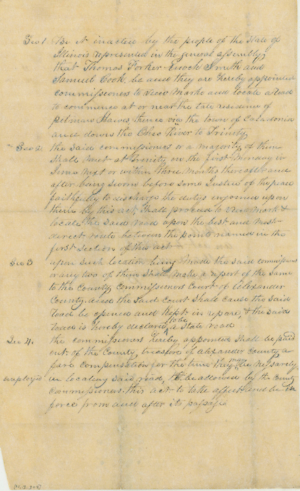 Sec 1 Be it enacted by the people of the State of
Illinois represented in the general assembly,
that Thomas Forker Enoch Smith and
Samuel Cook be and they are hereby appointed
commissioners to view Marke and locate a road
to commence at or near the late residence of
Fence via the town of Caledonia
down the Ohio River to Trinity,
Sec 2 the said commissioners or a majority of them
Shall meet at Trinity on the first Monday in
June next or within three months thereafter and
after being sworn before some Justice of the peace
faithfully to discharge the duties enjoined upon
them by this act, Shall proceed to view mark &
locate the said road upon the best and most
direct route between the points named in the
first section of this act
Sec 3 upon such location being made the said commissioners
or any two of them Shall make a report of the same
to the County Commissioners Court of Alexander
County and the said court Shall cause the said
road to be opened and kept in repair, & the said
road is hereby declared a State road
Sec 4 the commissioners hereby appointed Shall be paid
out of the County, treasury of Alexander County a
fair compensation for the time they are necessarily
employed in locating said road, to be allowed by the County
Commissioners this act to take effect and be in
force from and after its passage